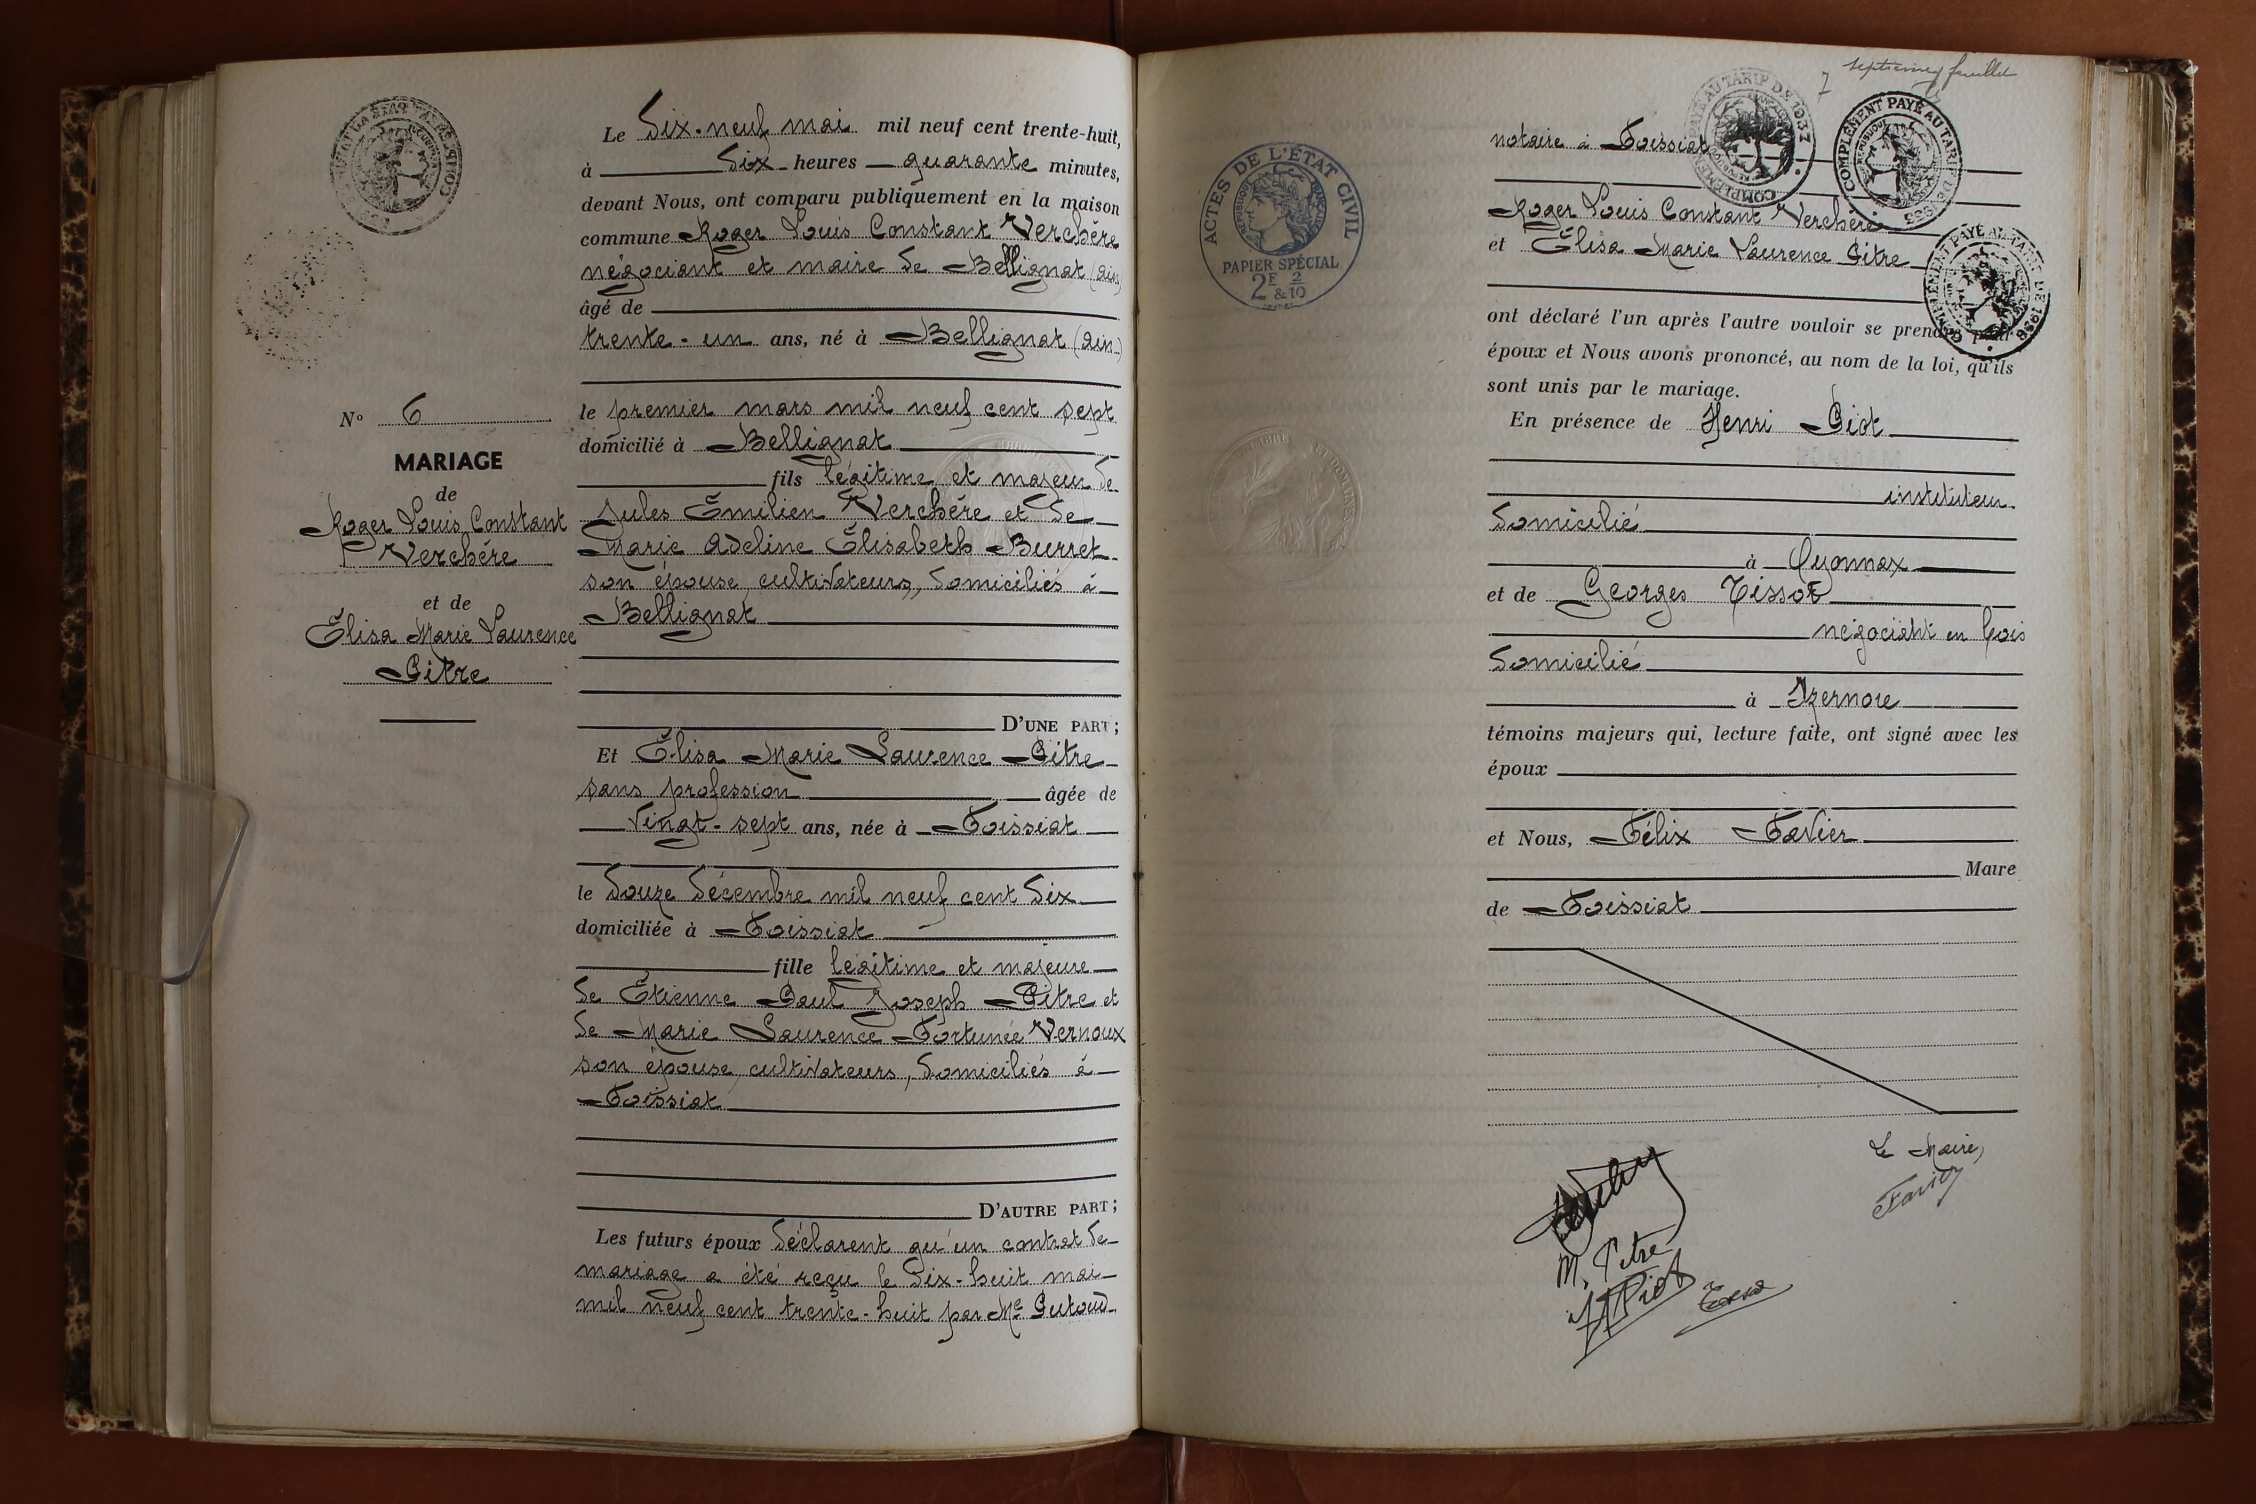 Le dix-neuf mai mil neuf cent trente-huit,
à dix heures quarante minutes,
devant Nous, ont comparu publiquement en la maison
commune Roger Louis Constant Verchère
négociant et maire de Bellignat (Ain)
âgé de
trente-un ans, né à Bellignat (Ain)
le premier mars mil neuf cent sept
domicilié à Bellignat
fils légitime et majeur de
Jules Emilien Verchère et de
Marie Adeline Élisabeth Burret
son épouse, cultivateurs, domiciliés à
Bellignat
D'UNE PART;
Et Élisa Marie Laurence Pitre
sans profession âgée de
vingt-sept ans, née à Foissiat
le douze décembre mil neuf cent dix
domiciliée à Foissiat
fille légitime et majeure
de Étienne Paul Joseph Pitre et
de Marie Laurence Fortunée Vernoux
son épouse, cultivateurs, domiciliés à
Foissiat
D'AUTRE PART;
Les futurs époux déclarent qu'un contrat de
mariage a été reçu le dix-huit mai
mil neuf cent trente-huit par Me Putoud
N° 6
MARIAGE
de
Roger Louis Constant
Verchère
et de
Élisa Marie Laurence
Pitre
7 septième feuillet
COMPLÉMENT PAYÉ AU TARIF DE 1937
COMPLÉMENT PAYÉ AU TARIF DE 1935
COMPLÉMENT PAYÉ AU TARIF DE 1936
ACTES DE L'ÉTAT CIVIL
RÉPUBLIQUE FRANÇAISE
PAPIER SPÉCIAL
2F & 2/10
notaire à Foissiat
Roger Louis Constant Verchère
et Élisa Marie Laurence Pitre
ont déclaré l'un après l'autre vouloir se prendre pour
époux et Nous avons prononcé, au nom de la loi, qu'ils
sont unis par le mariage.
En présence de Henri Piot
instituteur
domicilié
à Oyonnax
et de Georges Tissot
négociant en bois
domicilié
à Izernore
témoins majeurs qui, lecture faite, ont signé avec les
époux
et Nous, Félix Favier
Maire
de Foissiat
Le Maire,
Favier
M. Pitre
H Piot